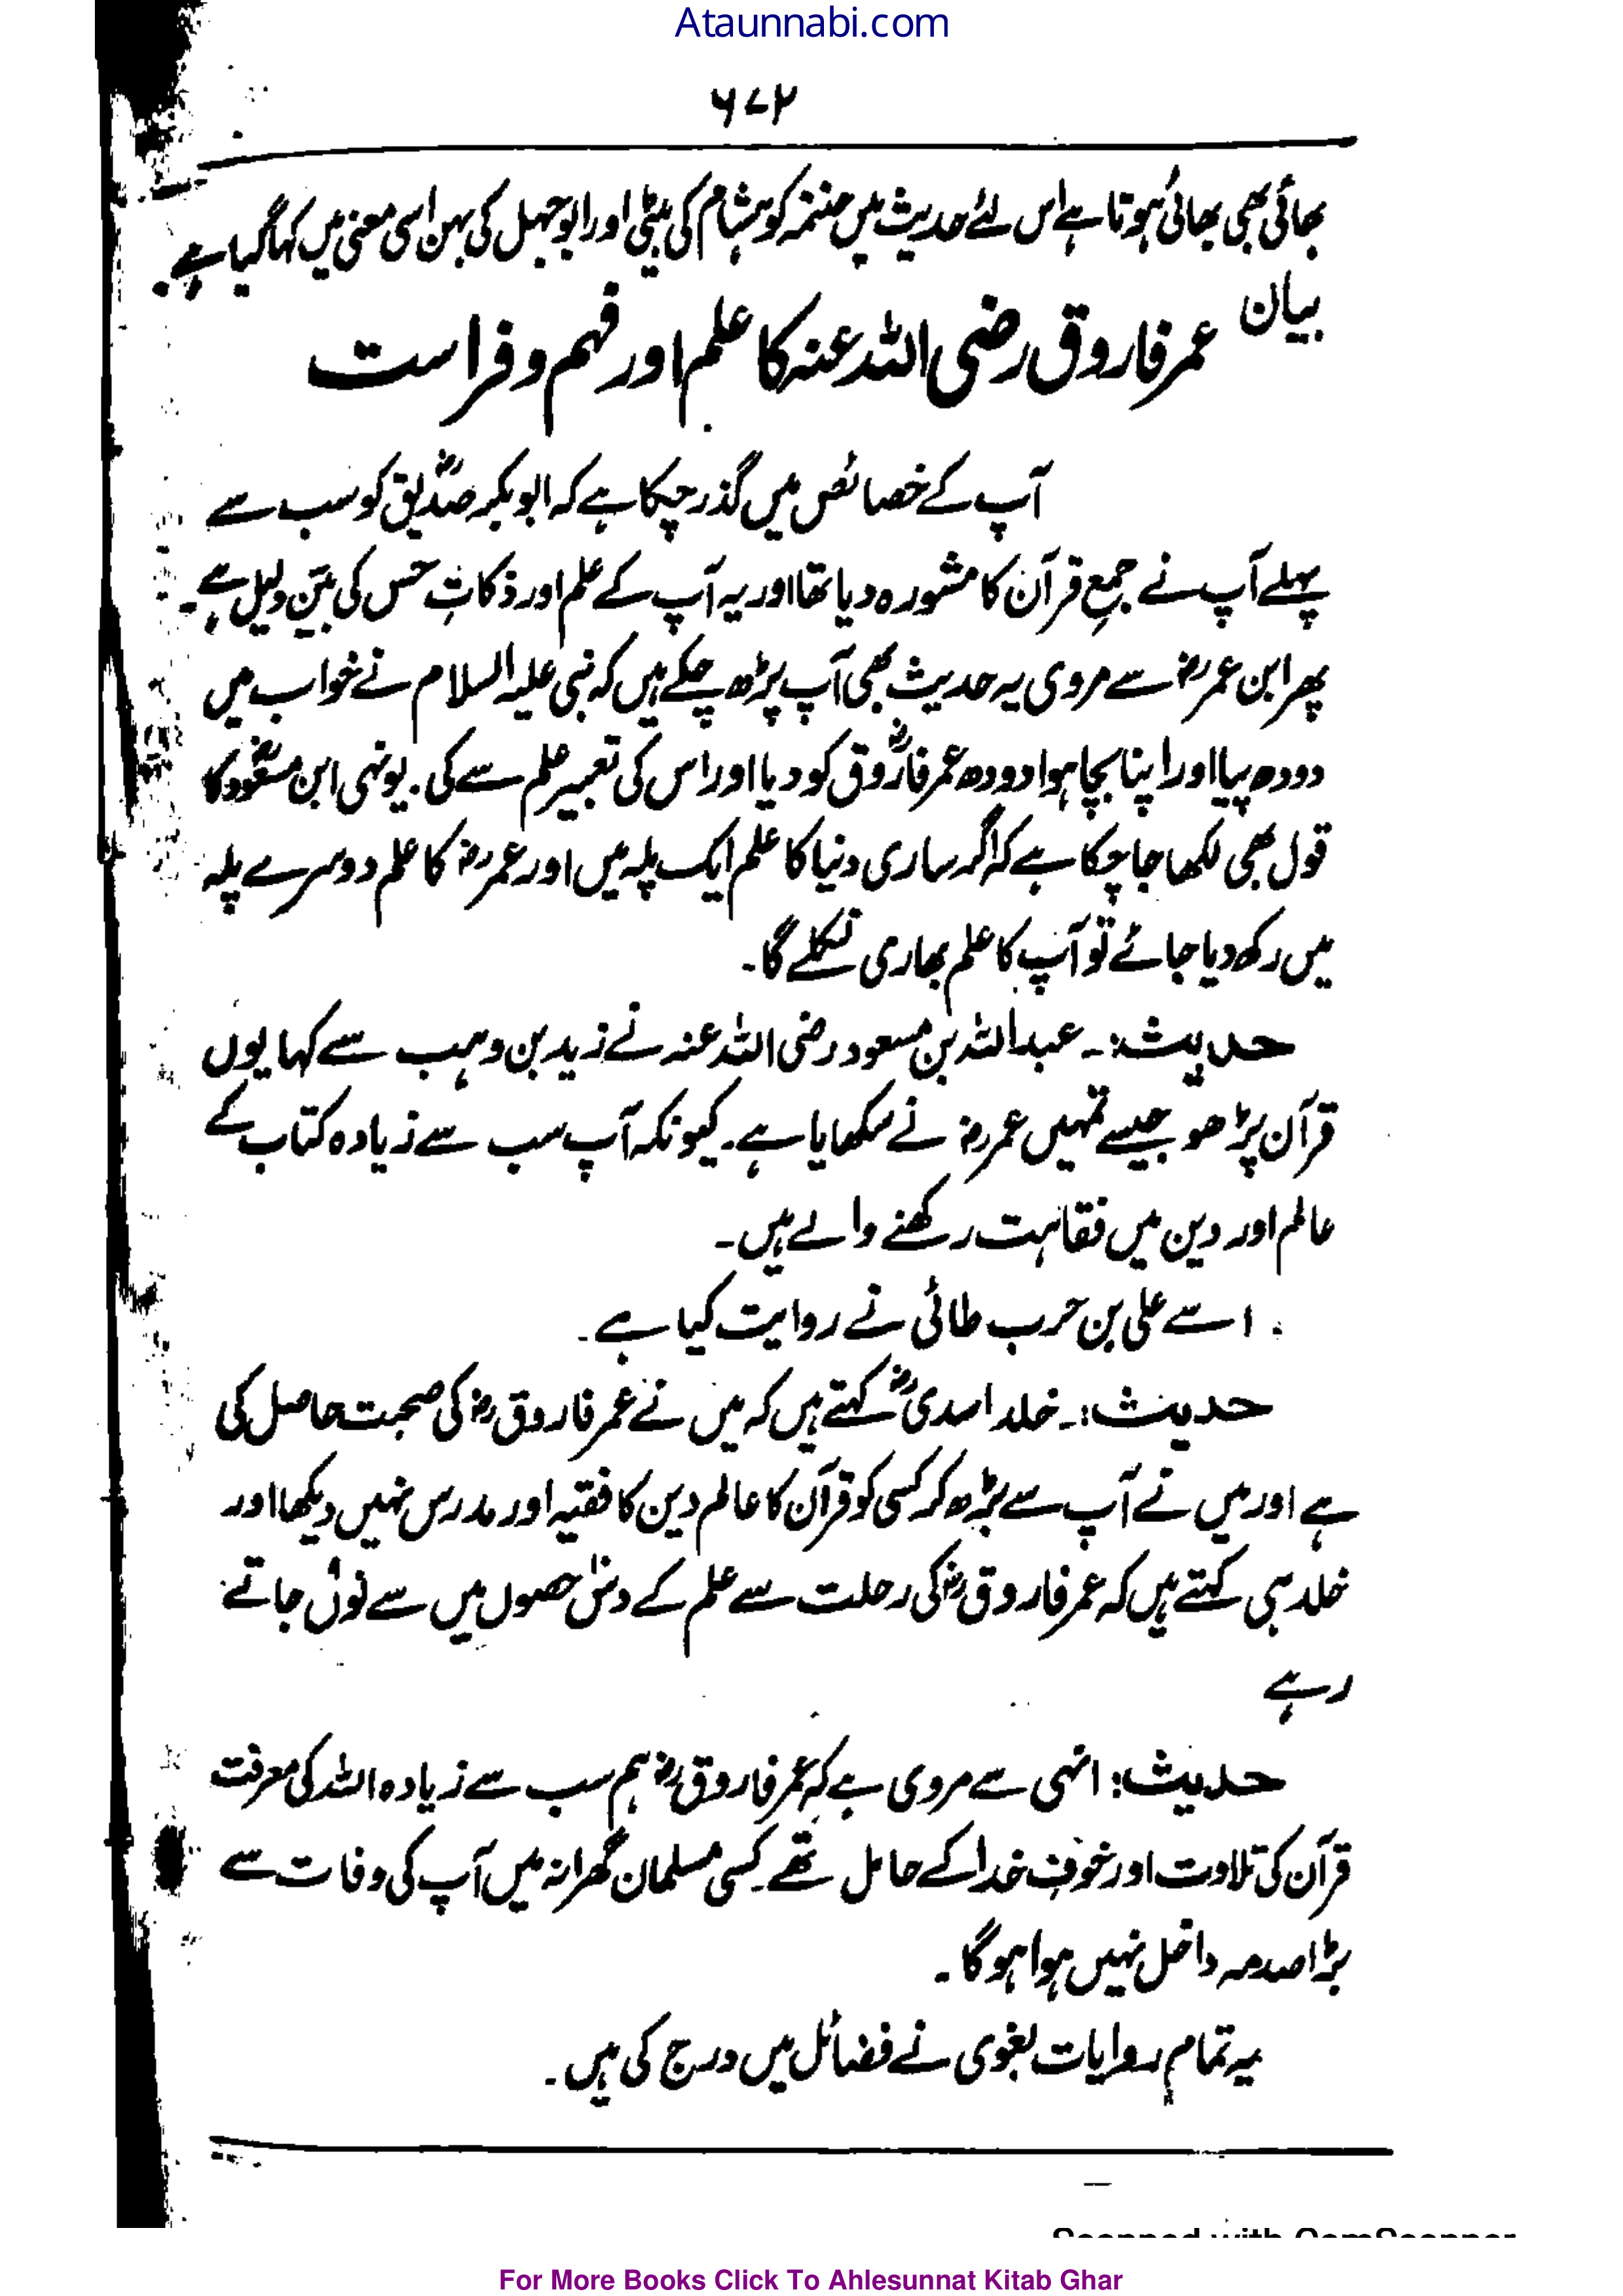 Ataunnabi.com
۶۷۲
بھائی بھی بھائی ہوتا ہے اس لئے حدیث میں حنتمہ کو ہشام کی بیٹی اور ابوجہل کی بہن اسی معنی میں کہا گیا ہے۔
بیان
عمر فاروق رضی اللہ عنہ کا علم اور فہم و فراست
آپ کے خصائص میں گذر چکا ہے کہ ابوبکر صدیقؓ کو سب سے
پہلے آپ نے جمعِ قرآن کا مشورہ دیا تھا اور یہ آپ کے علم اور ذکاتِ حس کی بیّن دلیل ہے۔
پھر ابن عمرؓ سے مروی یہ حدیث بھی آپ پڑھ چکے ہیں کہ نبی علیہ السلام نے خواب میں
دودھ پیا اور اپنا بچا ہوا دودھ عمر فاروقؓ کو دیا اور اس کی تعبیر علم سے کی۔ یونہی ابن مسعودؓ کا
قول بھی لکھا جا چکا ہے کہ اگر ساری دنیا کا علم ایک پلہ میں اور عمرؓ کا علم دوسرے پلہ
میں رکھ دیا جائے تو آپ کا علم بھاری نکلے گا۔
حدیث:۔ عبداللہ بن مسعود رضی اللہ عنہ نے زید بن وہب سے کہا یوں
قرآن پڑھو جیسے تمہیں عمرؓ نے سکھایا ہے۔ کیونکہ آپ سب سے زیادہ کتاب کے
عالم اور دین میں فقاہت رکھنے والے ہیں۔
اسے علی بن حرب طائی نے روایت کیا ہے۔
حدیث:۔ خلد اسدیؓ کہتے ہیں کہ میں نے عمر فاروقؓ کی صحبت حاصل کی
ہے اور میں نے آپ سے بڑھ کر کسی کو قرآن کا عالم دین کا فقیہ اور مدرس نہیں دیکھا اور
خلد ہی کہتے ہیں کہ عمر فاروقؓ کی رحلت سے علم کے دس حصوں میں سے نوں جاتے
رہے
حدیث: انہی سے مروی ہے کہ عمر فاروقؓ ہم سب سے زیادہ اللہ کی معرفت
قرآن کی تلاوت اور خوفِ خدا کے حامل تھے۔ کسی مسلمان گھرانہ میں آپ کی وفات سے
بڑا صدمہ داخل نہیں ہوا ہو گا۔
یہ تمام روایات بغوی نے فضائل میں درج کی ہیں۔
Scanned with CamScanner
For More Books Click To Ahlesunnat Kitab Ghar